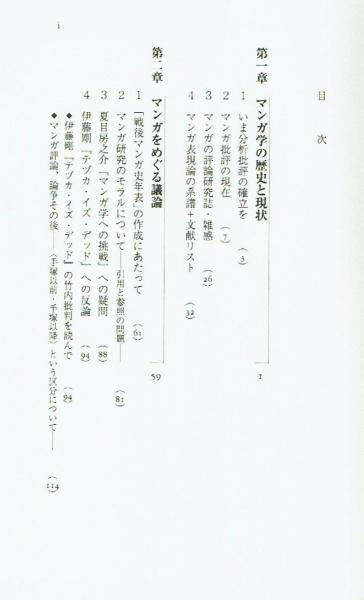 目次
第一章 マンガ学の歴史と現状 1
1 いま分析批評の確立を (3)
2 マンガ批評の現在 (7)
3 マンガの評論研究誌・雑感 (26)
4 マンガ表現論の系譜+文献リスト (32)
第二章 マンガをめぐる議論 59
1 「戦後マンガ史年表」の作成にあたって (61)
2 マンガ研究のモラルについて——引用と参照の問題—— (81)
3 夏目房之介「マンガ学への挑戦」への疑問 (88)
4 伊藤剛『テヅカ・イズ・デッド』への反論 (94)
◆伊藤剛『テヅカ・イズ・デッド』の竹内批判を読んで (94)
◆マンガ評論、論争その後——〈手塚以前・手塚以降〉という区分について—— (114)
i